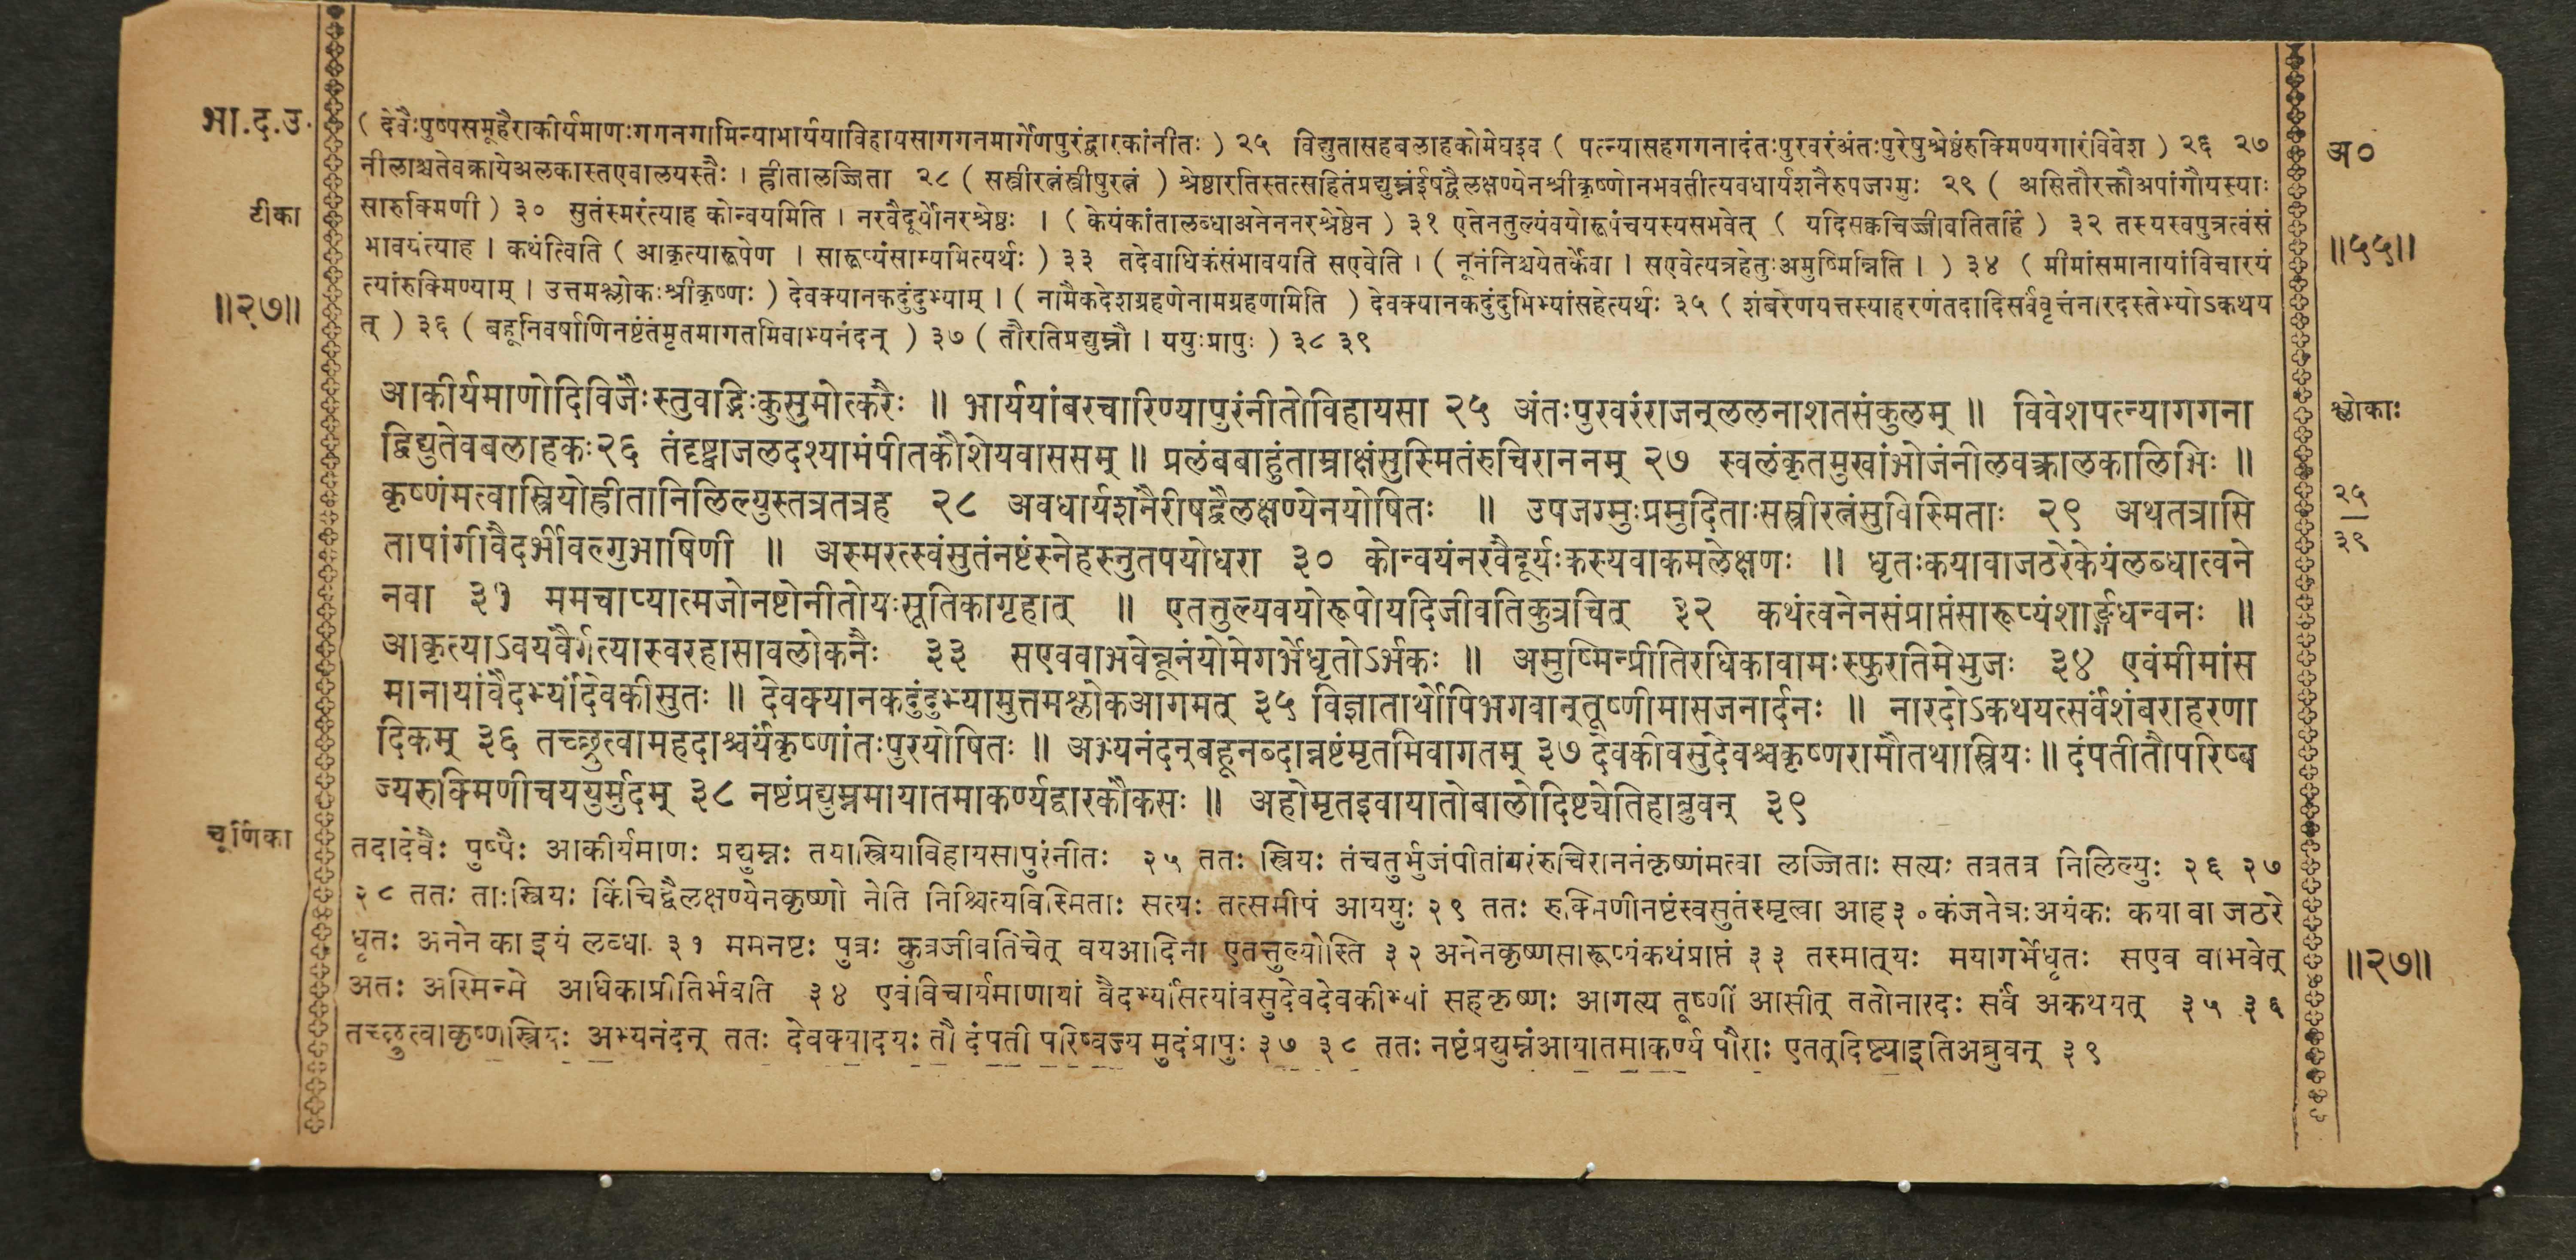 भा.द.उ.
( देवैःपुष्पसमूहैराकीर्यमाणःगगनगामिन्याभार्ययाविहायसागगनमार्गेणपुरंद्वारकांनीतः ) २५ विद्युतासहबलाहकोमेघइव ( पत्न्यासहगगनादंतःपुरवरंअंतःपुरेषुश्रेष्ठंरुक्मिण्यगारंविवेश ) २६ २७
अ०
नीलाश्चतेवक्रायेअलकास्तएवालयस्तैः । ह्रीतालज्जिता २८ ( सस्त्रीरत्नंस्त्रीषुरत्नं ) श्रेष्ठारतिस्तत्सहितंप्रद्युम्नंईषद्वैलक्षण्येनश्रीकृष्णोनभवतीत्यवधार्यशनैरुपजग्मुः २९ ( असितौरक्तौअपांगौयस्याः
टीका
सारुक्मिणी ) ३० सुतंस्मरंत्याह कोन्वयमिति । नरवैदूर्योनरश्रेष्ठः । ( केयंकांतालब्धाअनेननरश्रेष्ठेन ) ३१ एतेनतुल्यंवयोरूपंचयस्यसभवेत् ( यदिसक्वचिज्जीवतितर्हि ) ३२ तस्यस्वपुत्रत्वंसं
भावयंत्याह । कथंत्विति ( आकृत्यारूपेण । सारूप्यंसाम्यमित्यर्थः ) ३३ तदेवाधिकंसंभावयति सएवेति । ( नूनंनिश्चयेतर्केवा । सएवेत्यत्रहेतुःअमुष्मिन्निति । ) ३४ ( मीमांसमानायांविचारयं
॥५५॥
त्यांरुक्मिण्याम् । उत्तमश्लोकःश्रीकृष्णः ) देवक्यानकदुंदुभ्याम् । ( नामैकदेशग्रहणेनामग्रहणामिति ) देवक्यानकदुंदुभिभ्यांसहेत्यर्थः ३५ ( शंबरेणयत्तस्याहरणंतदादिसर्ववृत्तंनारदस्तेभ्योऽकथय
॥२७॥
त् ) ३६ ( बहूनिवर्षाणिनष्टंतंमृतमागतमिवाभ्यनंदन् ) ३७ ( तौरतिप्रद्युम्नौ । ययुःप्रापुः ) ३८ ३९
आकीर्यमाणोदिविजैःस्तुवद्भिःकुसुमोत्करैः ॥ भार्ययांबरचारिण्यापुरंनीतोविहायसा २५ अंतःपुरवरंराजन्ललनाशतसंकुलम् ॥ विवेशपत्न्यागगना
श्लोकाः
द्विद्युतेवबलाहकः२६ तंदृष्ट्वाजलदश्यामंपीतकौशेयवाससम् ॥ प्रलंबबाहुंताम्राक्षंसुस्मितंरुचिराननम् २७ स्वलंकृतमुखांभोजंनीलवक्रालकालिभिः ॥
कृष्णंमत्वास्त्रियोह्रीतानिलिल्युस्तत्रतत्रह २८ अवधार्यशनैरीषद्वैलक्षण्येनयोषितः ॥ उपजग्मुःप्रमुदिताःसस्त्रीरत्नंसुविस्मिताः २९ अथतत्रासि
२५
३९
तापांगीवैदर्भीवल्गुभाषिणी ॥ अस्मरत्स्वंसुतंनष्टंस्नेहस्नुतपयोधरा ३० कोन्वयंनरवैदूर्यःकस्यवाकमलेक्षणः ॥ धृतःकयावाजठरेकेयंलब्धात्वने
नवा ३१ ममचाप्यात्मजोनष्टोनीतोयःसूतिकागृहात् ॥ एतत्तुल्यवयोरूपोयदिजीवतिकुत्रचित् ३२ कथंत्वनेनसंप्राप्तंसारूप्यंशार्ङ्गधन्वनः ॥
आकृत्याऽवयवैर्गत्यास्वरहासावलोकनैः ३३ सएववाभवेन्नूनंयोमेगर्भेधृतोऽर्भकः ॥ अमुष्मिन्प्रीतिरधिकावामःस्फुरतिमेभुजः ३४ एवंमीमांस
मानायांवैदर्भ्यांदेवकीसुतः ॥ देवक्यानकदुंदुभ्यामुत्तमश्लोकआगमत् ३५ विज्ञातार्थोपिभगवान्तूष्णीमासजनार्दनः ॥ नारदोऽकथयत्सर्वंशंबराहरणा
दिकम् ३६ तच्छ्रुत्वामहदाश्चर्यंकृष्णांतःपुरयोषितः ॥ अभ्यनंदन्बहूनब्दान्नष्टंमृतमिवागतम् ३७ देवकीवसुदेवश्चकृष्णरामौतथास्त्रियः ॥ दंपतीतौपरिष्व
ज्यरुक्मिणीचययुर्मुदम् ३८ नष्टंप्रद्युम्नमायातमाकर्ण्यद्वारकौकसः ॥ अहोमृतइवायातोबालोदिष्ट्येतिहाब्रुवन् ३९
चूर्णिका
तदादेवैः पुष्पैः आकीर्यमाणः प्रद्युम्नः तयास्त्रियाविहायसापुरंनीतः २५ ततः स्त्रियः तंचतुर्भुजंपीतांबरंरुचिराननंकृष्णंमत्वा लज्जिताः सत्यः तत्रतत्र निलिल्युः २६ २७
२८ ततः ताःस्त्रियः किंचिद्वैलक्षण्येनकृष्णो नेति निश्चित्यविस्मिताः सत्यः तत्समीपं आययुः २९ ततः रुक्मिणीनष्टंस्वसुतंस्मृत्वा आह३० कंजनेत्रःअयंकः कया वा जठरे
धृतः अनेन का इयं लब्धा ३१ ममनष्टः पुत्रः कुत्रजीवतिचेत् वयआदिना एतत्तुल्योस्ति ३२ अनेनकृष्णसारूप्यंकथंप्राप्तं ३३ तस्मात्यः मयागर्भेधृतः सएव वाभवेत्
॥२७॥
अतः अस्मिन्मे अधिकाप्रीतिर्भवति ३४ एवंविचार्यमाणायां वैदर्भ्यांसत्यांवसुदेवदेवकीभ्यां सहकृष्णः आगत्य तूष्णीं आसीत् ततोनारदः सर्वं अकथयत् ३५ ३६
तच्छ्रुत्वाकृष्णस्त्रियः अभ्यनंदन् ततः देवक्यादयः तौ दंपती परिष्वज्य मुदंप्रापुः ३७ ३८ ततः नष्टंप्रद्युम्नंआयातमाकर्ण्य पौराः एतत्दिष्ट्याइतिअब्रुवन् ३९